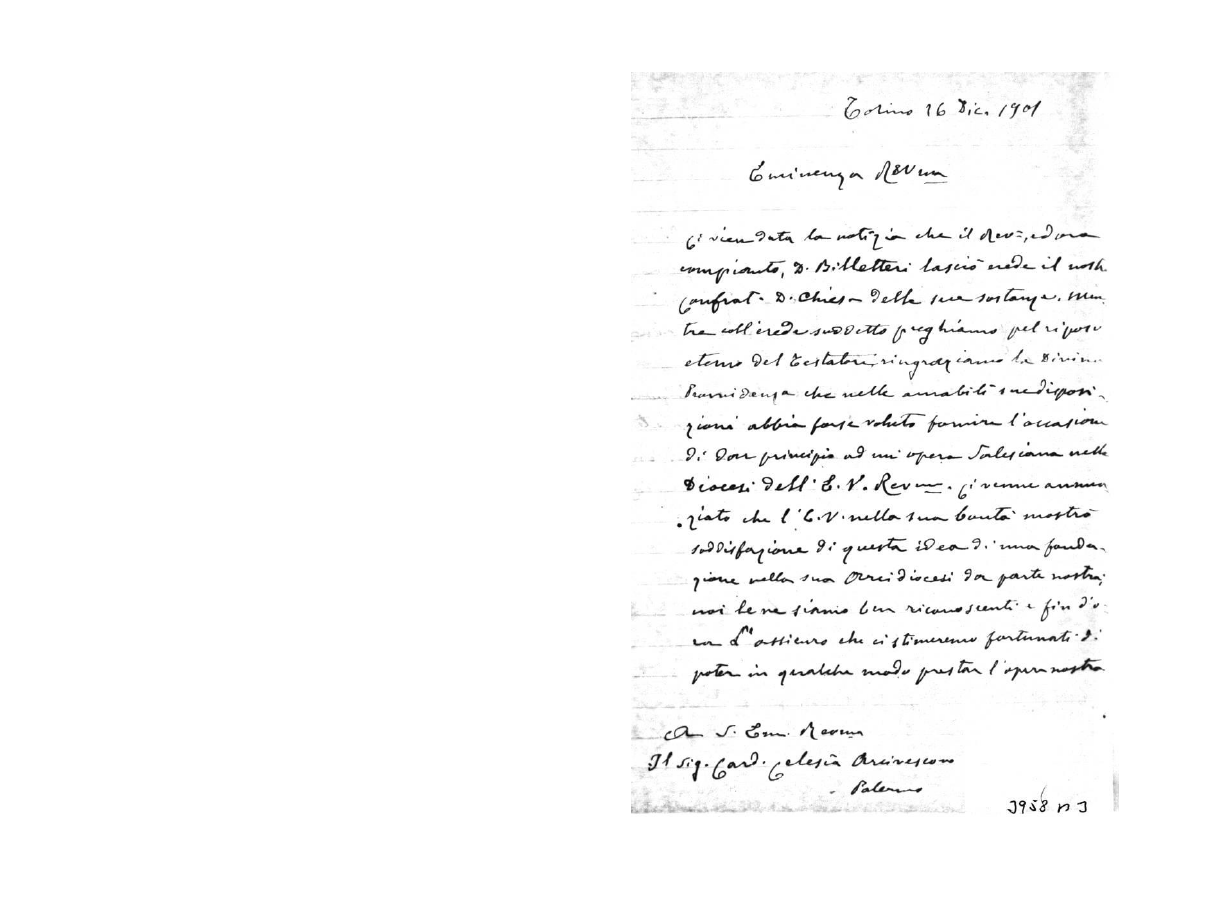 Torino 26 Dic. 1901
Eminenza Revma
Ci vien data la notizia che il Rev.º, ed ora
compianto, D. Billetteri lasciò erede il nostr.
Confrat. D. Chiesa delle sue sostanze. Men
tre coll'erede suddetto preghiamo pel riposo
eterno del Testatore, ringraziamo la Divina
Provvidenza che nelle amabili sue disposi-
zioni abbia forse voluto fornire l'occasione
di dar principio ad un' opera Salesiana nella
Diocesi dell' E. V. Revma. Ci venne annun
ziato che l' E. V. nella sua bontà mostrò
soddisfazione di questa idea di una fonda-
zione nella sua Arcidiocesi da parte nostra;
noi le ne siamo ben riconoscenti e fin d'o-
ra L' assicuro che ci stimeremo fortunati di
poter in qualche modo prestar l'opera nostra
A S. Em. Revma
Il Sig. Card. Celesia Arcivescovo
Palermo